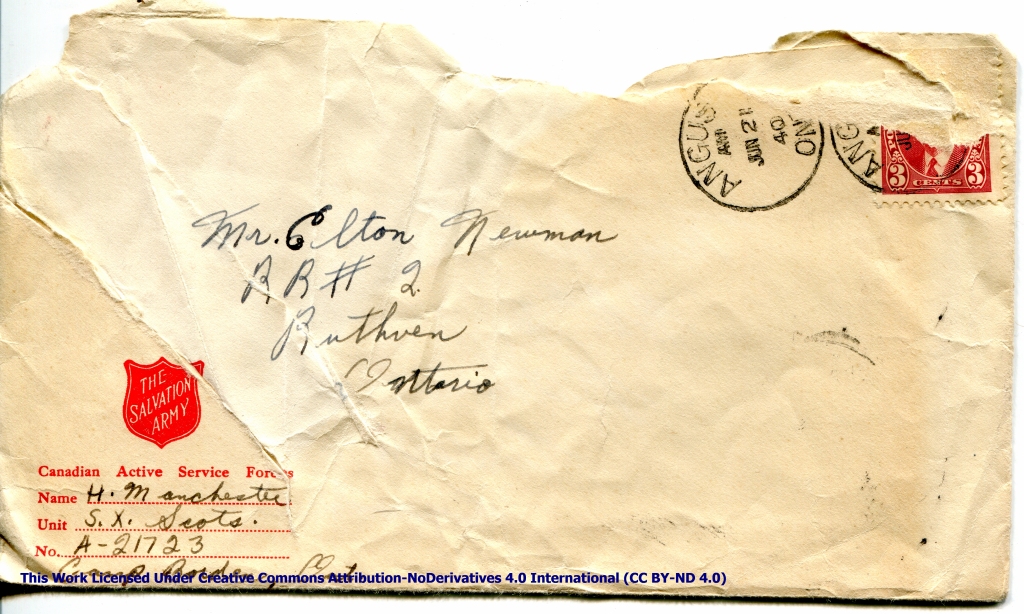 ANGUS
AM
JUN 21
40
ONT
ANG
3 CENTS 3
Mr. Elton Newman
RR# 2
Ruthven
Ontario
THE
SALVATION
ARMY
Canadian Active Service Forces
Name H. Manchester
Unit S.X. Scots.
No. A-21723
Camp Borden, Ont
This Work Licensed Under Creative Commons Attribution-NoDerivatives 4.0 International (CC BY-ND 4.0)